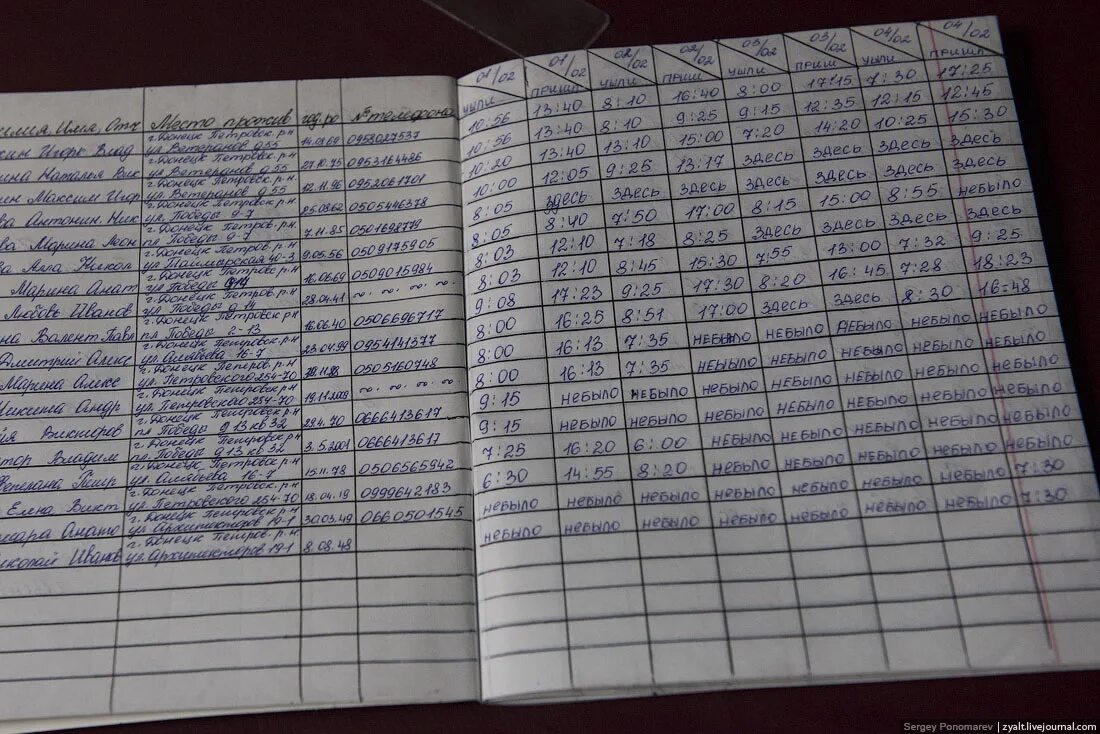 Место прожив
год.ро
№ телефона
г. Донецк Петровск. р-н
ул Ветеранов д55
14.01.69
0958027537
Наталья Вик
г. Донецк Петровск р-н
ул. Ветеранов д 55
21.10.75
0953164486
Максим Игор
г. Донецк Петровск р-н
ул. Ветеранов д 55
12.11.96
0952061701
Антонин. Ник
г. Донецк Петровск р-н
ул. Победы 9-7
25.08.62
0505446378
Марина Леон
г. Донецк Петров. р-н
пл. Победы 9-7
7.11.85
0501698779
Алла Никол
г. Донецк Петров. р-н
9.05.56
0509175905
Марина Анат
г. Донецк Петровск р-н
ул. Победы
16.06.69
0509015984
Любовь Иванов
г. Донецк Петров. р-н
28.04.41
Валент. Павл
г. Донецк Петровск р-н
пл. Победы 2-13
16.06.40
0506696717
Дмитрий Алекс
г. Донецк Петровск р-н
ул. Алябьева 16-7
23.04.99
0954141377
Марина Алекс
г. Донецк Петров. р-н
ул. Петровского 254-70
0505160748
Андр
г. Донецк Петровск р-н
ул. Петровского 254-70
19.11.2009
Викторов
г. Донецк Петровск р-н
пл Победы д 13 кв 32
28.4.70
0666413617
Владим
г. Донецк Петровск р-н
пл. Победы д 13 кв 32
3.5.2001
0666413617
г. Донецк Петровск р-н
ул. Алябьева 16-7
15.11.78
0506565942
Елена Викт
г. Донецк Петровск р-н
ул. Петровского 254-70
18.04.19
0999642183
г. Донецк Петров. р-н
ул. Архитекторов 19-1
30.03.49
0660501545
Иванов
г. Донецк Петров. р-н
ул. Архитекторов 19-1
8.08.48
01/02 01/02 02/02 02/02 03/02 03/02 04/02 04/02
ушли пришл ушли пришл ушли пришл ушли пришл
10:56 13:40 8:10 16:40 8:00 17:15 7:30 17:25
10:56 13:40 8:10 9:25 9:15 12:35 12:15 12:45
10:20 13:40 13:10 15:00 7:20 14:20 10:25 15:30
10:00 12:05 9:25 13:17 здесь здесь здесь здесь
8:05 здесь здесь здесь здесь здесь здесь здесь
8:05 8:40 7:50 17:00 8:15 15:00 8:55 небыло
8:03 12:10 7:18 8:25 здесь здесь здесь здесь
8:03 12:10 8:45 15:30 7:55 13:00 7:32 9:25
9:08 17:23 9:25 17:30 8:20 16:45 7:28 18:23
8:00 16:25 8:51 17:00 здесь здесь 8:30 16=48
8:00 16:13 7:35 небыло небыло небыло небыло небыло
8:00 16:13 7:35 небыло небыло небыло небыло небыло
9:15 небыло небыло небыло небыло небыло небыло небыло
9:15 небыло небыло небыло небыло небыло небыло небыло
7:25 16:20 6:00 небыло небыло небыло небыло небыло
6:30 14:55 8:20 небыло небыло небыло небыло небыло
небыло небыло небыло небыло небыло небыло небыло 7:30
небыло небыло небыло небыло небыло небыло небыло 7:30
Sergey Ponomarev | zyalt.livejournal.com